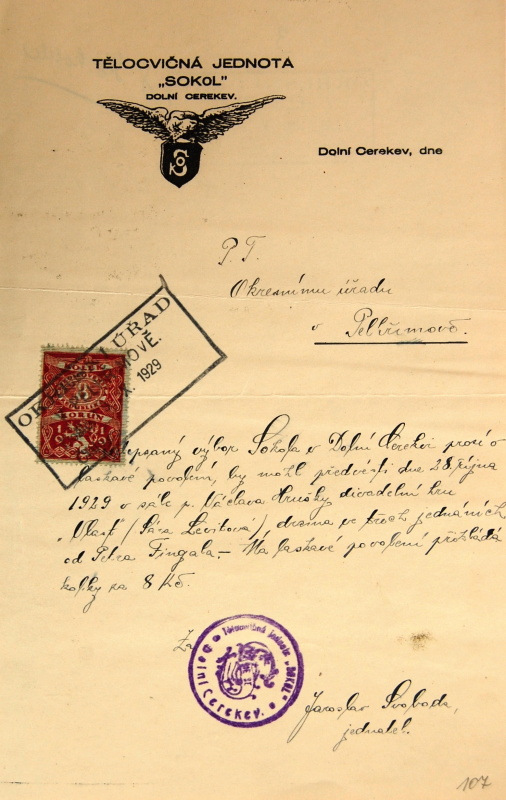 TĚLOCVIČNÁ JEDNOTA
„SOKOL"
DOLNÍ CEREKEV.
Dolní Cerekev, dne
P. T.
Okresnímu úřadu
v Pelhřimově.
OKRESNÍ ÚŘAD
1929
KOLEK
KORUN
výbor Sokola v Dolní Cerekvi prosí o
laskavé povolení, by mohl předvésti dne 28. října
1929 v sále p. Václava Hrušky divadelní hru
„Vlast" (Sára Levitova) drama ve třech jednáních
od Petra Fingala. – Na laskavé povolení přikládá
kolky za 8 Kč.
Za
Tělocvičná jednota „SOKOL"
Dolní Cerekev.
Jaroslav Svoboda,
jednatel.
107